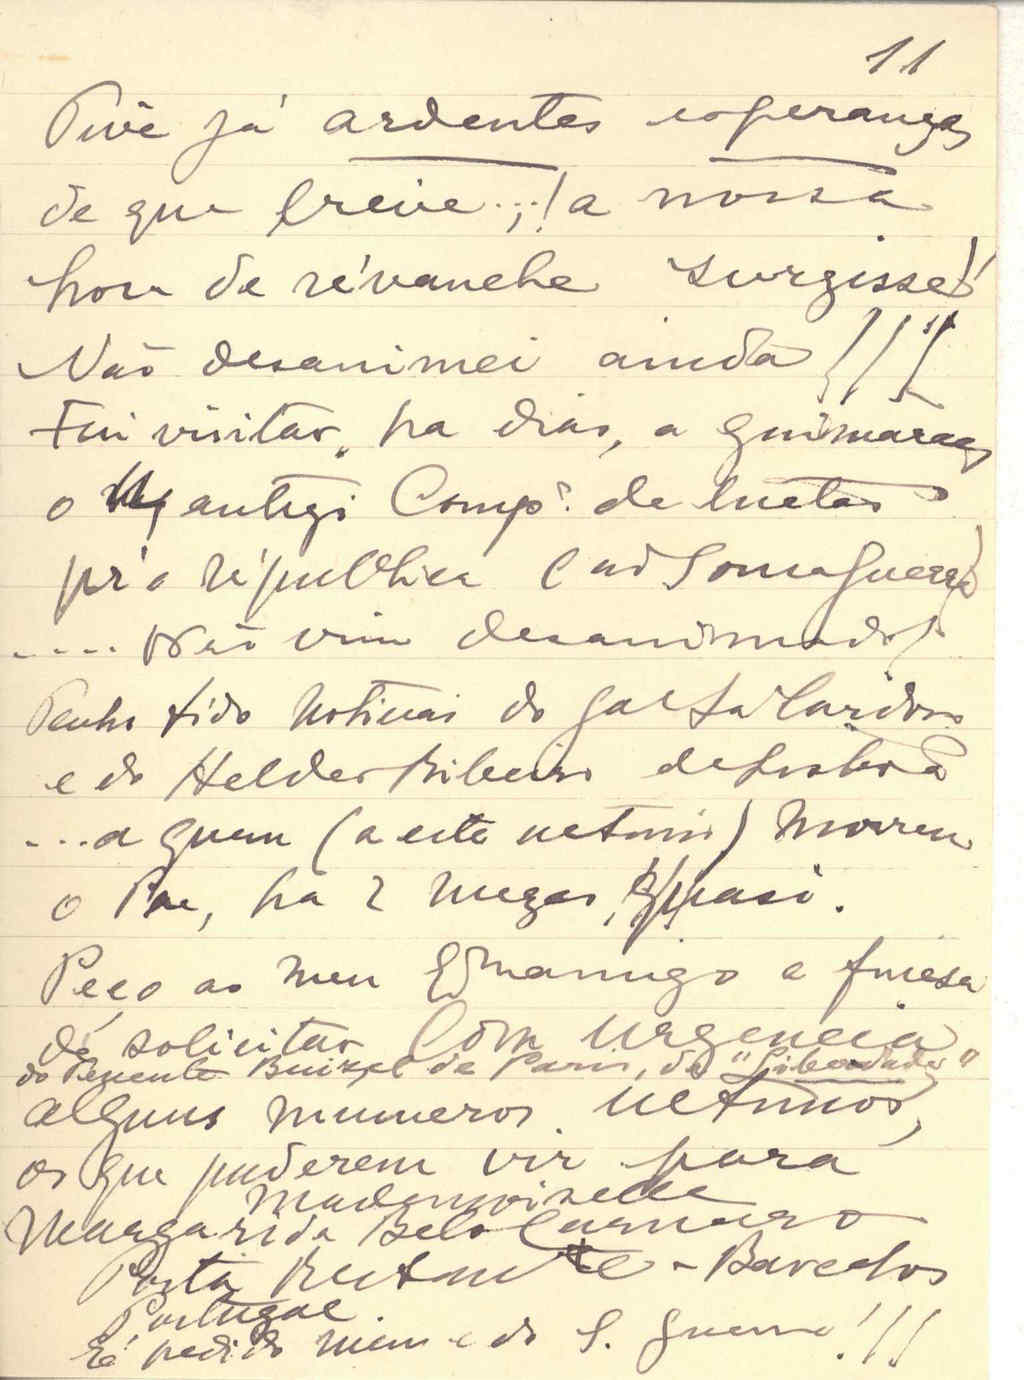 11
Tive já ardentes esperanças
de que breve...;! a nossa
hora de révanche surgisse!
Não desanimei ainda!!!
Fui visitar, ha dias, a Guimarães
o antigo Comp.º de luctas
pr'a républica Cad Soma Guerra
.... Não vim desanimado!
Tenho tido noticias do Gal Sá Cardoso
e do Helder Ribeiro de Lisboa
...a quem (a este ultimo) morreu
o Pae, ha 2 mezes, quasi.
Peço ao meu Exmo amigo a finesa
de solicitar com urgencia
do Tenente Buizel de Paris, da "Liberdade"
alguns numeros ultimos,
os que puderem vir para
Mademoiselle
Margarida Belo Carneiro
Porta
Barcelos
Portugal
É pedido meu e do S. Guerra!!!